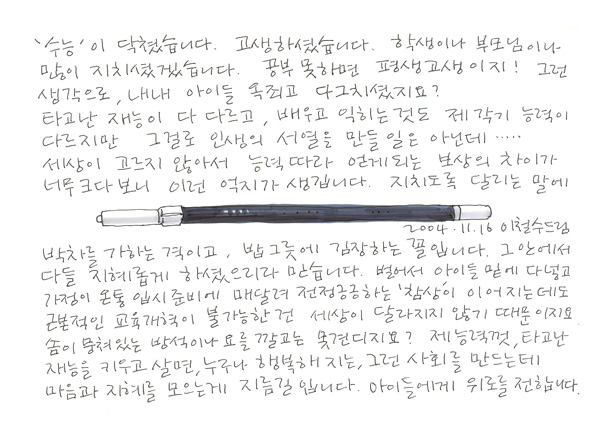 '수능'이 닥쳤습니다. 고생하셨습니다. 학생이나 부모님이나
많이 지치셨겠습니다. 공부 못하면 평생고생이지! 그런
생각으로, 내내 아이들 옥죄고 다그치셨지요?
타고난 재능이 다 다르고, 배우고 익히는 것도 제각기 능력이
다르지만 그걸로 인생의 서열을 만들 일은 아닌데.....
세상이 고르지 않아서 능력따라 얻게되는 보상의 차이가
너무 크다보니 이런 억지가 생깁니다. 지치도록 달리는 말에
2004.11.16 이철수드림
박차를 가하는 격이고, 밥그릇에 김장하는 꼴입니다. 그 안에서
다들 지혜롭게 하셨으리라 믿습니다. 벌어서 아이들 밑에 다 넣고
가정이 온통 입시준비에 매달려 전전긍긍하는 '참상'이 이어지는데도
근본적인 교육개혁이 불가능한 건 세상이 달라지지 않기 때문이지요.
솜이 뭉쳐있는 방석이나 요를 깔고는 못견디지요? 제 능력껏, 타고난
재능을 키우고 살면, 누구나 행복해지는, 그런 사회를 만드는데
마음과 지혜를 모으는게 지름길입니다. 아이들에게 위로를 전합니다.